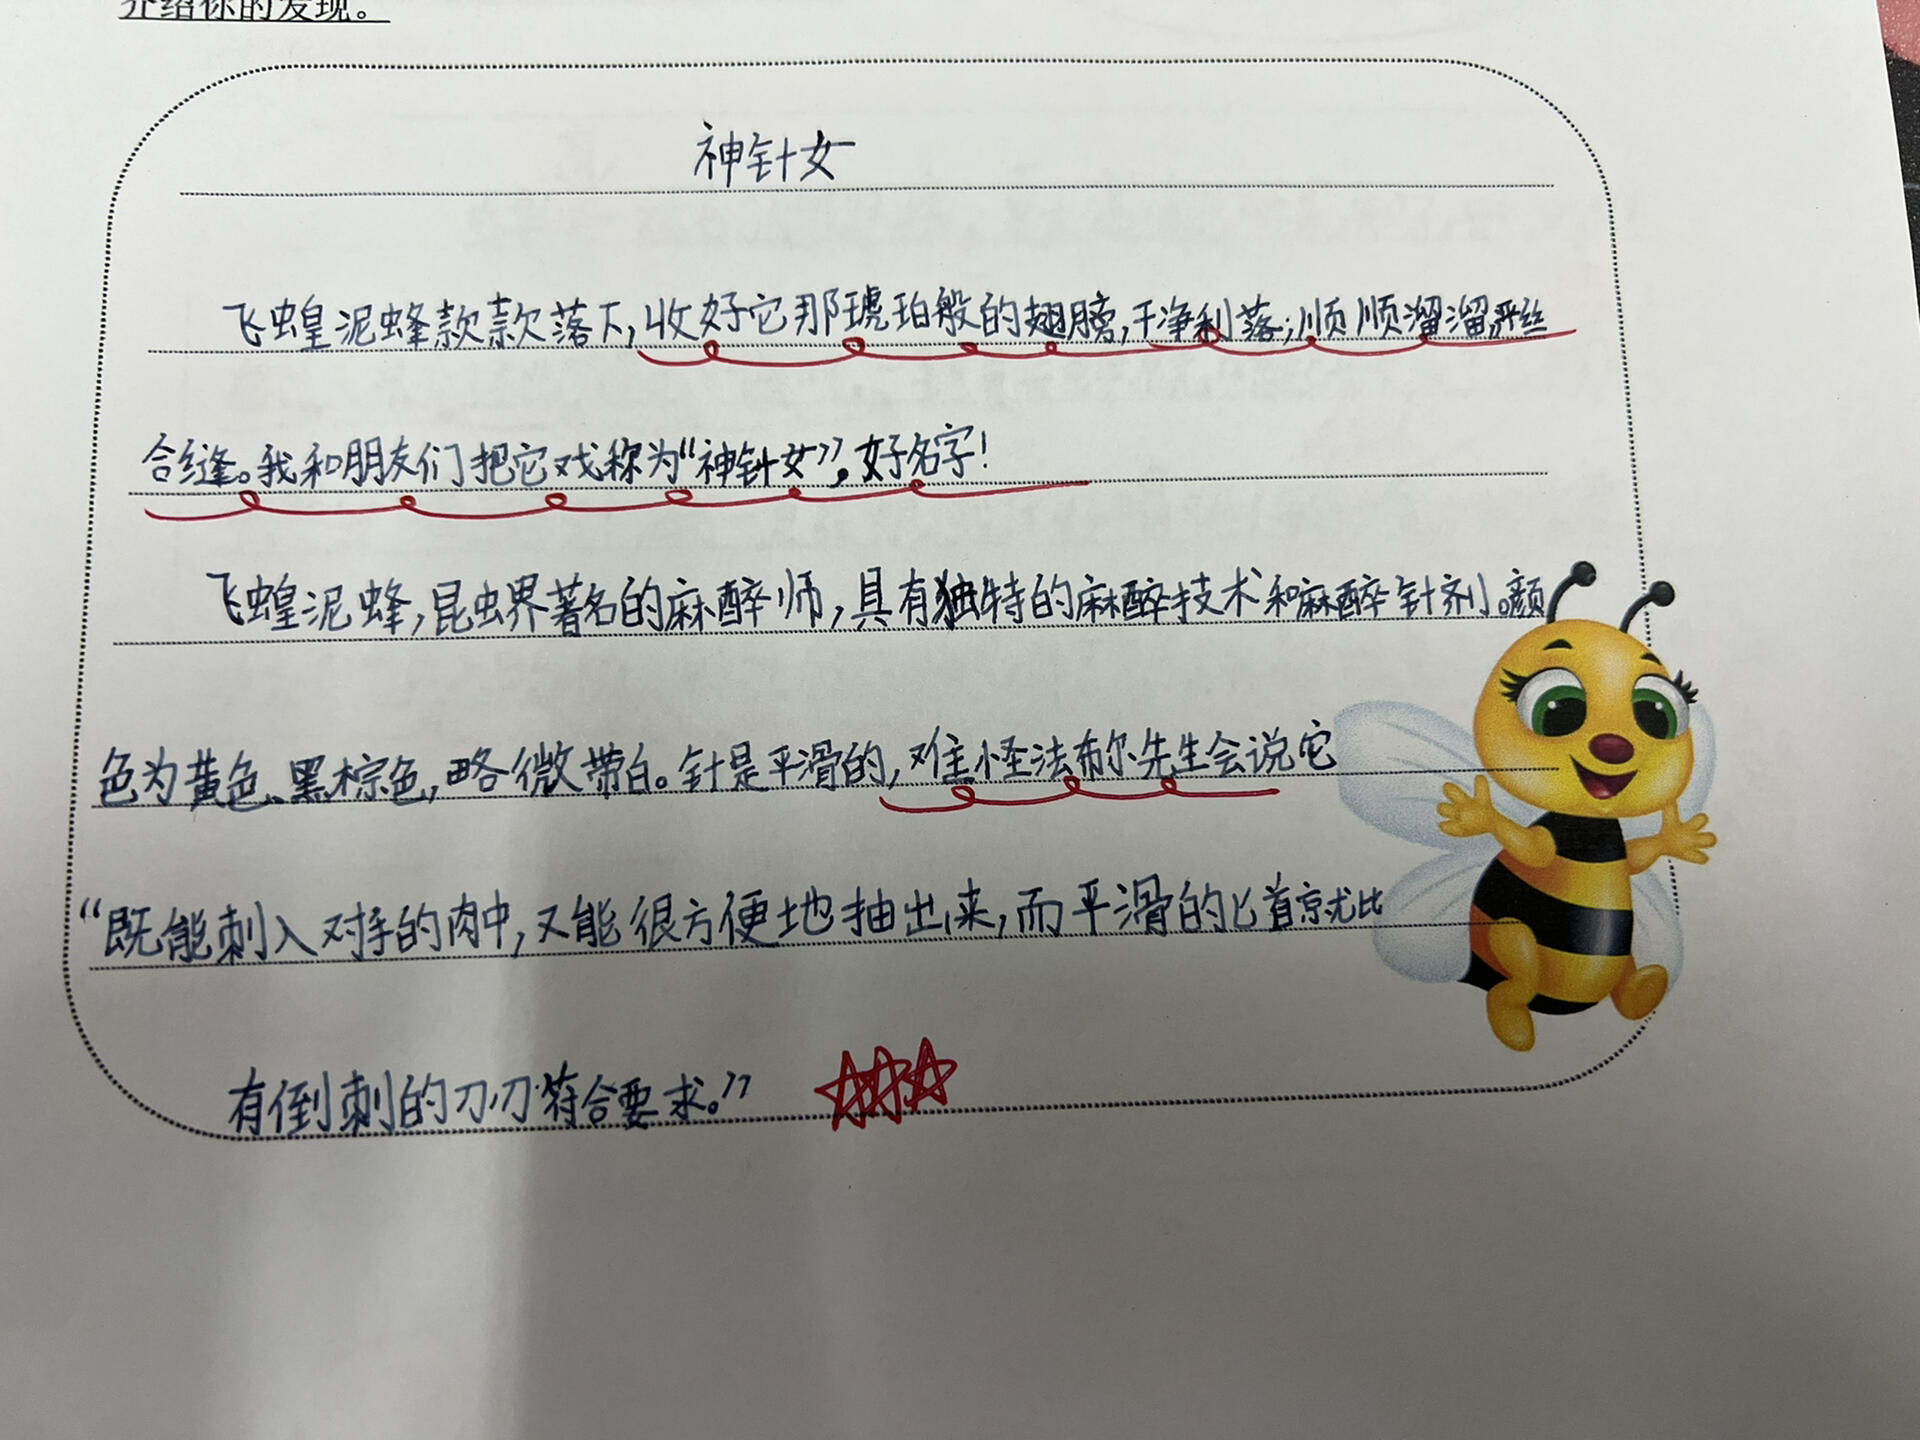 介绍你的发现。
神针女
飞蝗泥蜂款款落下,收好它那琥珀般的翅膀,干净利落;顺顺溜溜,严丝
合缝。我和朋友们把它戏称为“神针女”,好名字!
飞蝗泥蜂,昆虫界著名的麻醉师,具有独特的麻醉技术和麻醉针剂。颜
色为黄色、黑棕色,略微带白。针是平滑的,难怪法布尔先生会说它
“既能刺入对手的肉中,又能很方便地抽出来,而平滑的匕首就比
有倒刺的刀刃符合要求。”